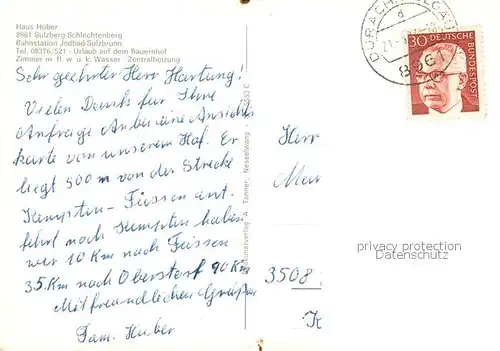 Haus Huber
8961 Sulzberg-Schlechtenberg
Bahnstation Jodbad-Sulzbrunn
Tel. 08376/521 - Urlaub auf dem Bauernhof
Zimmer m. fl. w. u. k. Wasser Zentralheizung
Sehr geehrter Herr Hartung!
Vielen Dank für Ihre
Anfrage Anbei eine Ansichts
karte von unserem Hof. Er
liegt 500 m von der Strecke
Kempten - Füssen ent.
fehrt nach Kempten haben
wir 10 Km nach Füssen
35 Km nach Oberstorf 40 Km
Mit freundlichen Grüßen
Fam. Huber
A. Tanner, Nesselwang
DURACH
8961
30
DEUTSCHE BUNDESPOST
Herr
3508
privacy protection
Datenschutz